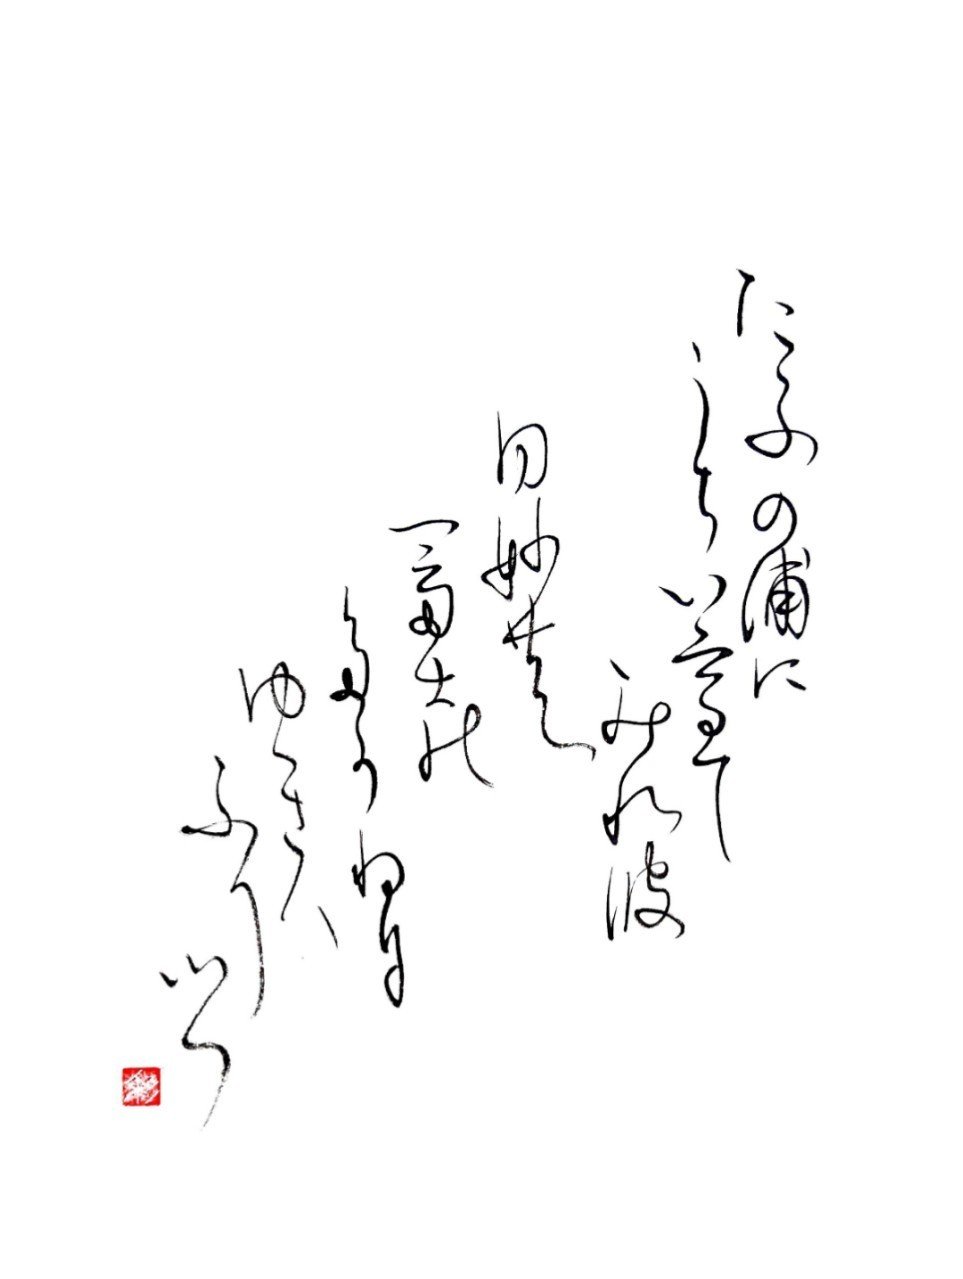 たこの浦に
うちいてて
みれ波
白妙乃
富士の
多可ねに
ゆきは
ふりつつ